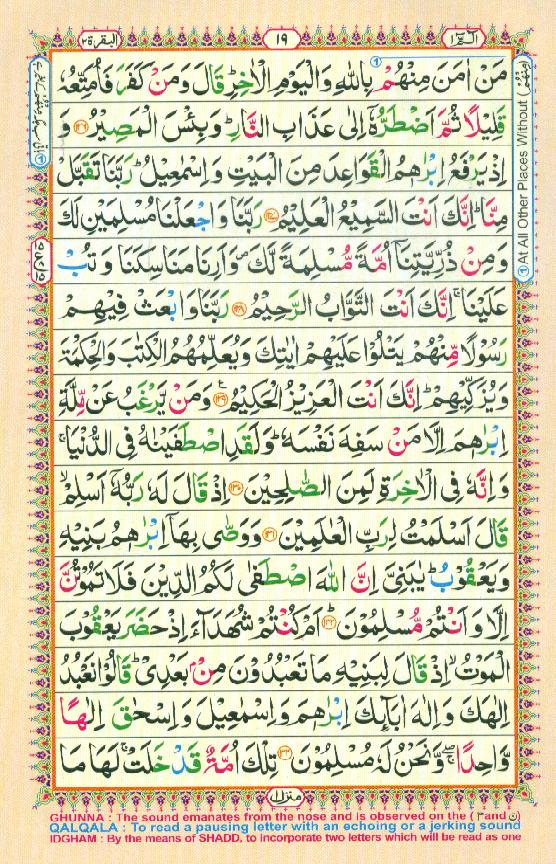 البقرة ٢
١٩
الٓمّٓ ١
مَنْ اٰمَنَ مِنْهُمْ بِاللّٰهِ وَالْيَوْمِ الْاٰخِرِؕ قَالَ وَمَنْ كَفَرَ فَاُمَتِّعُهٗ
قَلِيْلًا ثُمَّ اَضْطَرُّهٗۤ اِلٰى عَذَابِ النَّارِؕ وَبِئْسَ الْمَصِيْرُ ﴿١٢٦﴾ وَ
اِذْ يَرْفَعُ اِبْرٰهٖمُ الْقَوَاعِدَ مِنَ الْبَيْتِ وَاِسْمٰعِيْلُؕ رَبَّنَا تَقَبَّلْ
مِنَّاؕ اِنَّكَ اَنْتَ السَّمِيْعُ الْعَلِيْمُ ﴿١٢٧﴾ رَبَّنَا وَاجْعَلْنَا مُسْلِمَيْنِ لَكَ
وَمِنْ ذُرِّيَّتِنَاۤ اُمَّةً مُّسْلِمَةً لَّكَ۪ وَاَرِنَا مَنَاسِكَنَا وَتُبْ
عَلَيْنَاۚ اِنَّكَ اَنْتَ التَّوَّابُ الرَّحِيْمُ ﴿١٢٨﴾ رَبَّنَا وَابْعَثْ فِيْهِمْ
رَسُوْلًا مِّنْهُمْ يَتْلُوْا عَلَيْهِمْ اٰيٰتِكَ وَيُعَلِّمُهُمُ الْكِتٰبَ وَالْحِكْمَةَ
وَيُزَكِّيْهِمْؕ اِنَّكَ اَنْتَ الْعَزِيْزُ الْحَكِيْمُ ﴿١٢٩﴾ وَمَنْ يَّرْغَبُ عَنْ مِّلَّةِ
اِبْرٰهٖمَ اِلَّا مَنْ سَفِهَ نَفْسَهٗؕ وَلَقَدِ اصْطَفَيْنٰهُ فِى الدُّنْيَاۚ
وَاِنَّهٗ فِى الْاٰخِرَةِ لَمِنَ الصّٰلِحِيْنَ ﴿١٣٠﴾ اِذْ قَالَ لَهٗ رَبُّهٗۤ اَسْلِمْۙ
قَالَ اَسْلَمْتُ لِرَبِّ الْعٰلَمِيْنَ ﴿١٣١﴾ وَوَصّٰى بِهَاۤ اِبْرٰهٖمُ بَنِيْهِ
وَيَعْقُوْبُؕ يٰبَنِىَّ اِنَّ اللّٰهَ اصْطَفٰى لَكُمُ الدِّيْنَ فَلَا تَمُوْتُنَّ
اِلَّا وَاَنْتُمْ مُّسْلِمُوْنَؕ ﴿١٣٢﴾ اَمْ كُنْتُمْ شُهَدَآءَ اِذْ حَضَرَ يَعْقُوْبَ
الْمَوْتُۙ اِذْ قَالَ لِبَنِيْهِ مَا تَعْبُدُوْنَ مِنْۢ بَعْدِىْؕ قَالُوْا نَعْبُدُ
اِلٰهَكَ وَاِلٰهَ اٰبَآئِكَ اِبْرٰهٖمَ وَاِسْمٰعِيْلَ وَاِسْحٰقَ اِلٰهًا
وَّاحِدًاۖۚ وَّنَحْنُ لَهٗ مُسْلِمُوْنَ ﴿١٣٣﴾ تِلْكَ اُمَّةٌ قَدْ خَلَتْۚ لَهَا مَا
منزل ١
At All Other Places Without
GHUNNA : The sound emanates from the nose and is observed on the ( م and ن )
QALQALA : To read a pausing letter with an echoing or a jerking sound
IDGHAM : By the means of SHADD, to incorporate two letters which will be read as one